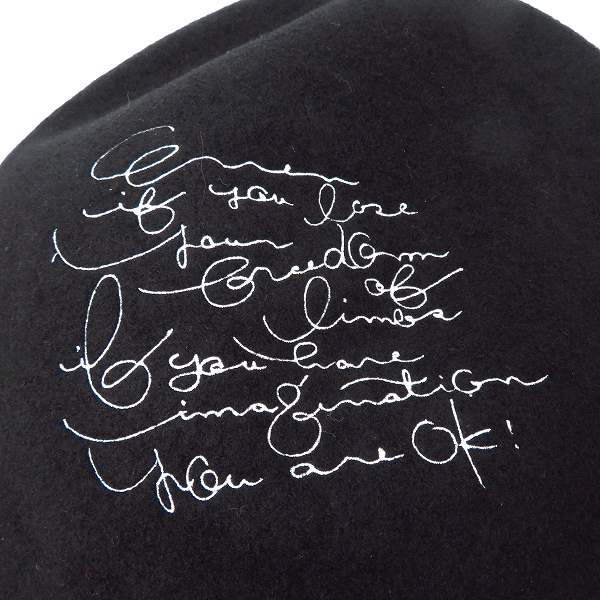 Even
if you lose
your freedom
of
limbs
if you have
imagination
you are OK!